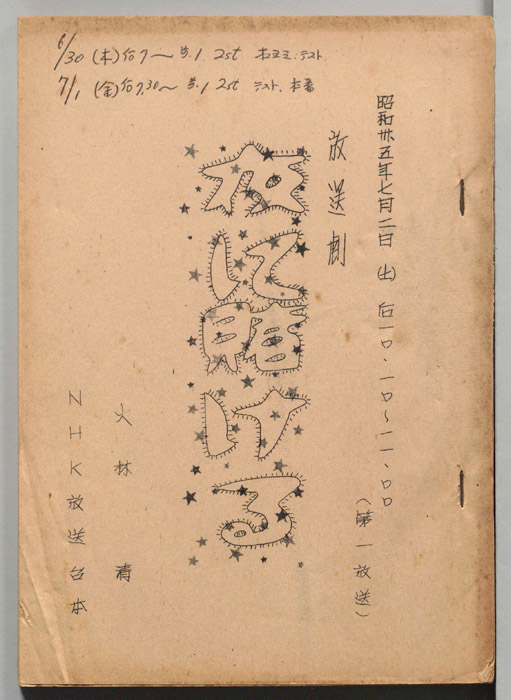 6/30 (木) 后7〜 第1 2st 本ヨミ、テスト
7/1 (金) 后7.30〜 第1 2st テスト、本番
昭和卅五年七月二日(土)后一〇・一〇〜一一・〇〇
(第一放送)
放送劇
夜に賭ける
大林 清
NHK放送台本